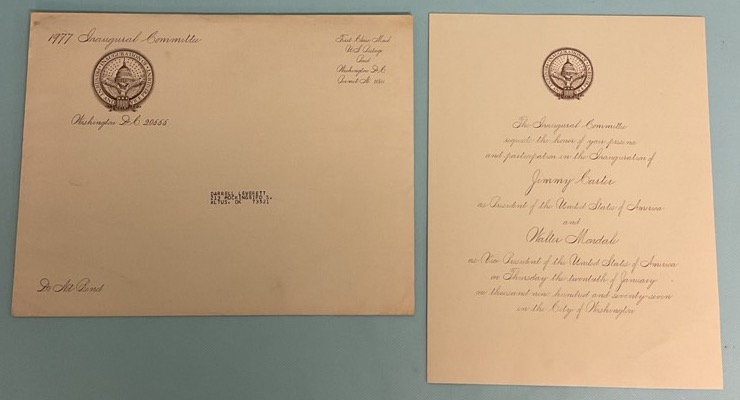 1977 Inaugural Committee
Washington D.C. 20555
First Class Mail
U.S. Postage
Paid
Washington D.C.
Permit No.
DARRELL LEVERETT
213 MOCKINGBIRD S.
ALTUS, OK 73521
Do Not Bend
The Inaugural Committee
request the honor of your presence
and participation in the Inauguration of
Jimmy Carter
as President of the United States of America
and
Walter Mondale
as Vice President of the United States of America
on Thursday the twentieth of January
one thousand nine hundred and seventy-seven
in the City of Washington